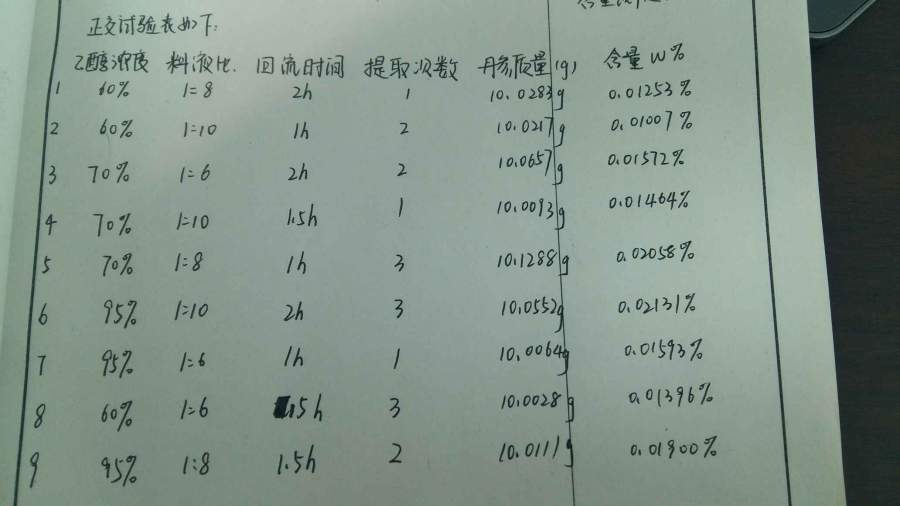 正交试验表如下:
乙醇浓度 料液比. 回流时间 提取次数 丹参质量(g) 含量W%
1 60% 1:8 2h 1 10.0283g 0.01253%
2 60% 1:10 1h 2 10.0217g 0.01007%
3 70% 1:6 2h 2 10.0657g 0.01572%
4 70% 1:10 1.5h 1 10.0093g 0.01464%
5 70% 1:8 1h 3 10.1288g 0.02058%
6 95% 1:10 2h 3 10.0552g 0.02131%
7 95% 1:6 1h 1 10.0064g 0.01593%
8 60% 1:6 1.5h 3 10.0028g 0.01396%
9 95% 1:8 1.5h 2 10.0111g 0.01900%